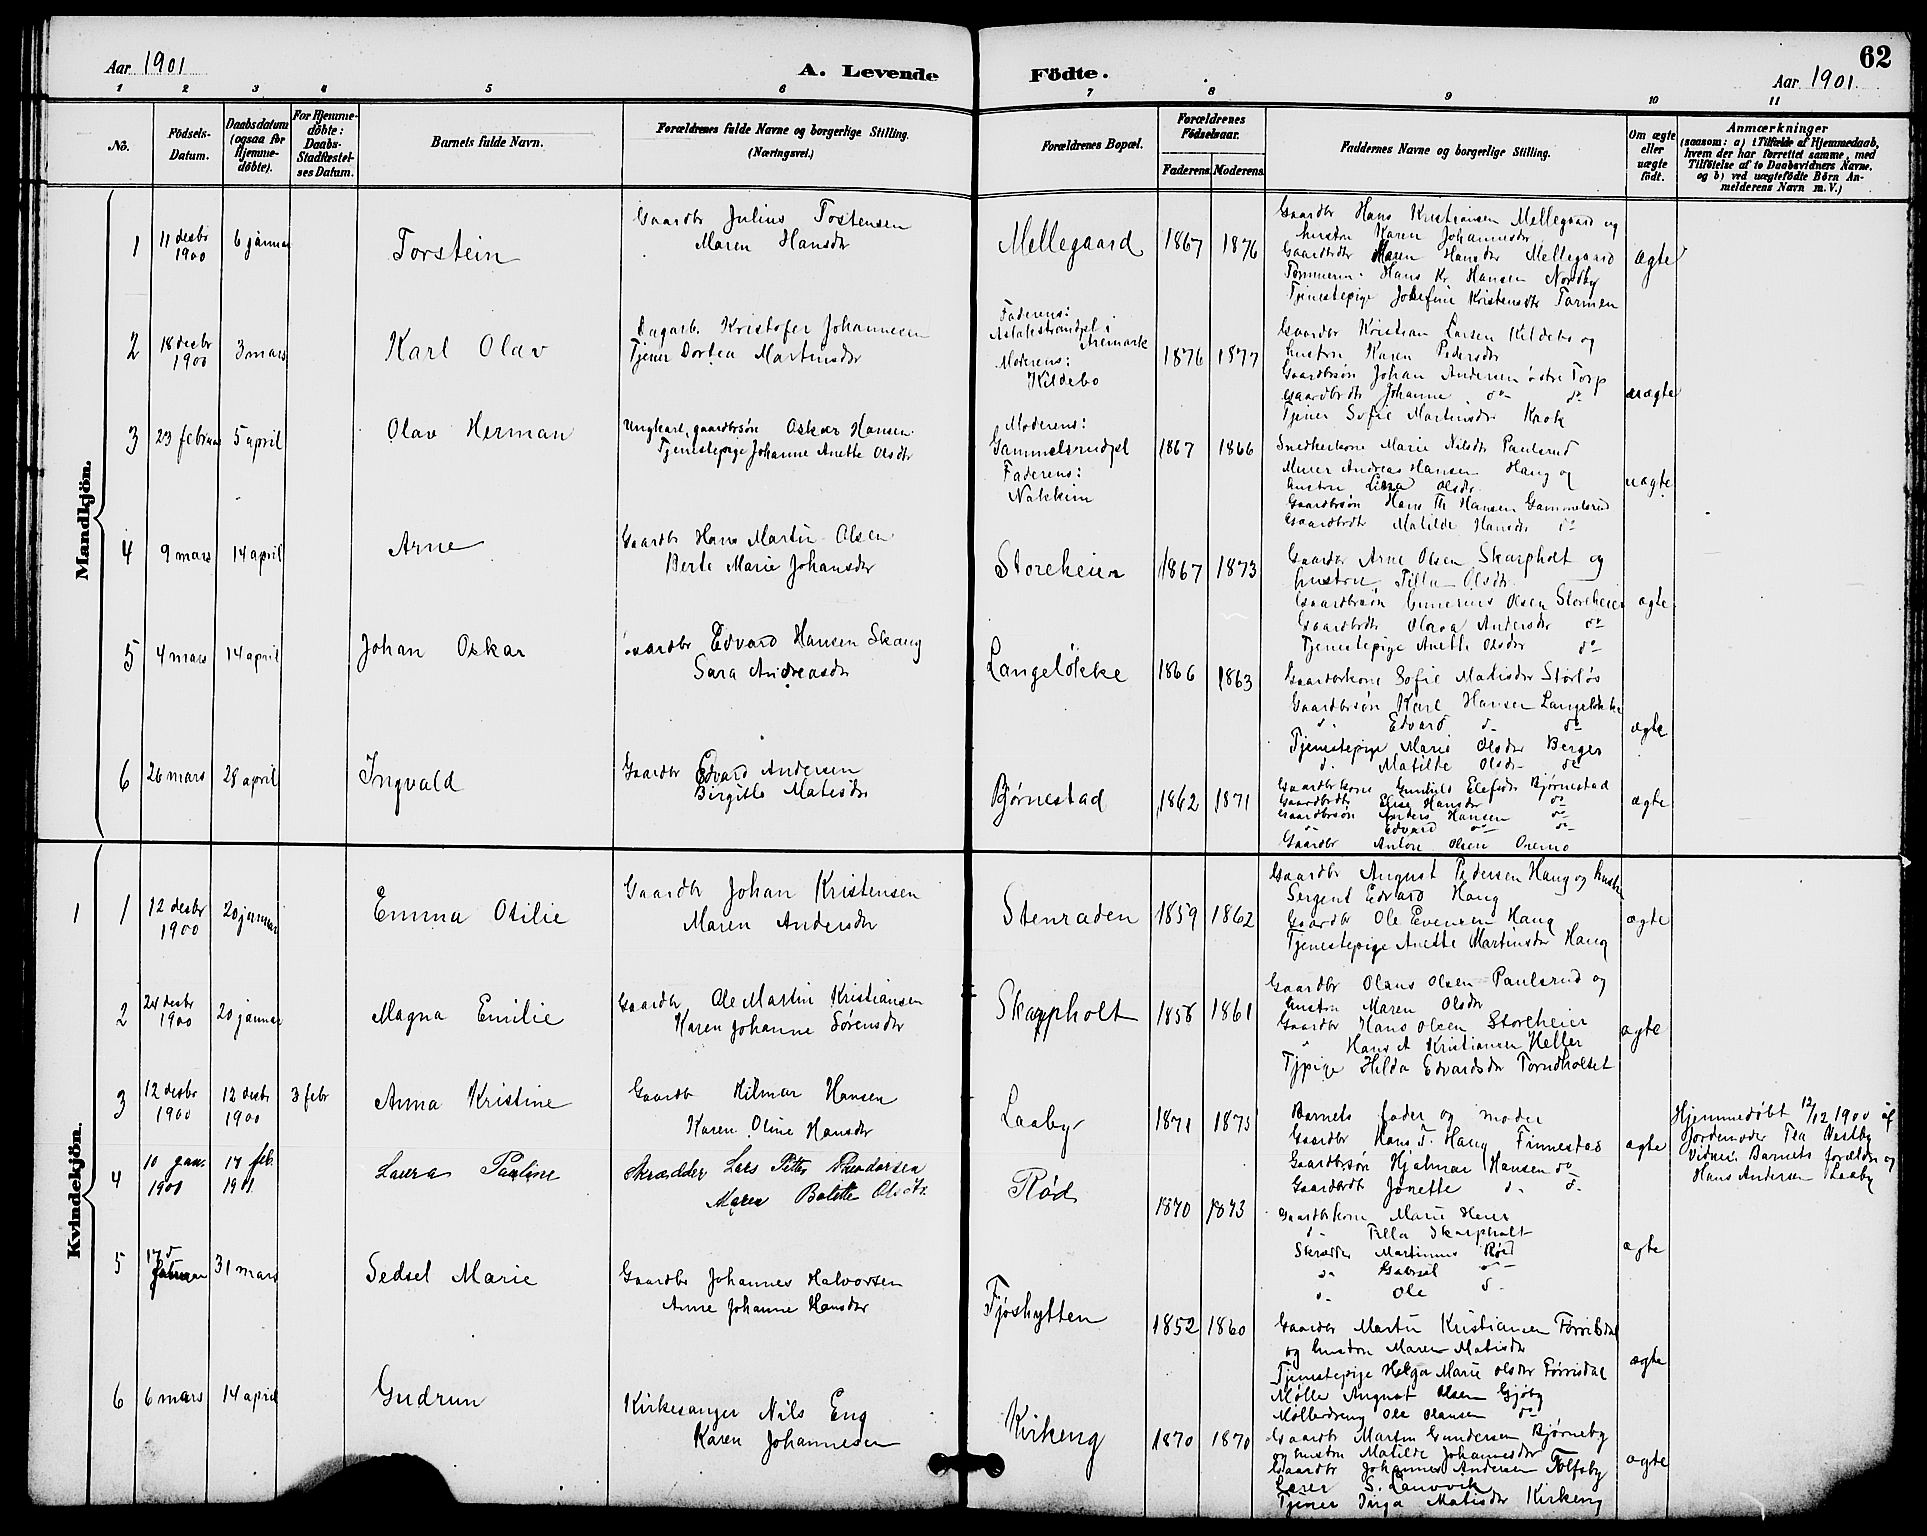 Aar 1901
A. Levende Födte.
62
Aar 1901.
1 2 3 4 5 6 7 8 9 10 11
No.
Födsels-Datum.
Daabsdatum (ogsaa for Hjemme-döbte).
For Hjemme-döbte: Daabs-Stadfæstel-ses Datum.
Barnets fulde Navn.
Forældrenes fulde Navne og borgerlige Stilling.
(Næringsvei.)
Forældrenes Bopæl.
Forældrenes Födselsaar.
Faderens. Moderens.
Faddernes Navne og borgerlige Stilling.
Om ægte eller uægte födt.
Anmærkninger
(saasom: a) i Tilfælde af Hjemmedaab, hvem der har forrettet samme, med Tilföielse af to Daabsvidners Navne, og b) ved uægtefödte Börn An-melderens Navn m. V.)
Mandkjön.
1 11 desbr 1900 6 januar Torstein
Gaardbr Julius Tostensen
Maren Hansdr
Mellegaard 1867 1876
Gaardbr Hans Kristiansen Mellegaard og
hustru Karen Johannesdr
Gaardbrdtr Maren Hansdr Mellegaard
Tømmerm. Hans Kr. Hansen Nordby
Tjenestepige Josefine Kristensdtr Tormen
ægte
2 18 desbr 1900 3 mars Karl Olav
Dagarb. Kristofer Johannesen
Tjener Dortea Martinsdr
Faderens:
i Aremark
Moderens:
Kildebo
1876 1877
Gaardbr Kristian Larsen Kildebo og
hustru Karen Pedersdr
Gaardbrsøn Johan Andersen østre Torp
Gaardbrdtr Johanne do do
Tjener Sofie Martinsdr Krok
uægte
3 23 februar 5 april Olav Herman
Ungkarl, gaardbrsøn Oskar Hansen
Tjenestepige Johanne Anette Olsdtr
Moderens:
Gammelsrudpl
Faderens:
Nakkim
1867 1866
Snedkerkone Marie Nilsdtr Paulsrud
Murer Andreas Hansen Haug og
hustru Lina Olsdr
Gaardbrsøn Hans Th Hansen Gammelsrud
Gaardbrdtr Matilde Hansdr do
uægte
4 9 mars 14 april Arne
Gaardbr Hans Martin Olsen
Berte Marie Johansdr
Storeheier 1867 1873
Gaardbr Arne Olsen Skarpholt og
hustru Tilla Olsdtr
Gaardbrsøn Gunerius Olsen Storeheier
Gaardbrdtr Olava Andersdr do
Tjenestepige Anette Olsdr do
ægte
5 4 mars 14 april Johan Oskar
Gaardbr Edvard Hansen Skaug
Sara Andreasdr
Langeløkke 1866 1863
Gaardbrkone Sofie Matisdr Størløs
Gaardbrsøn Karl Hansen Langeløkke
do Edvard do do
Tjenestepige Marie Olsdr Berger
do Matilde Olsdr do
ægte
6 26 mars 28 april Ingvald
Gaardbr Edvard Andersen
Birgitte Matisdr
Bjørnestad 1862 1871
Gaardbrkone Gunhild Elefsdr Bjørnestad
Gaardbrdtr Elise Hansdr do
Gaardbrsøn Anders Hansen do
do Edvard do do
Gaardbr Anton Olsen
ægte
Kvindekjön.
1 1 12 desbr 1900 20 januar Emma Otilie
Gaardbr Johan Kristensen
Maren Andersdr
Stenraden 1859 1862
Gaardbr August Pedersen Haug og hustru
Sergent Edvard Haug
Gaardbr Ole Evensen Haug
Tjenestepige Anette Martinsdr Haug
ægte
2 24 desbr 1900 20 januar Magna Emilie
Gaardbr Ole Martin Kristiansen
Karen Johanne Sørensdr
Skarpholt 1858 1861
Gaardbr Olaus Olsen Paulsrud og
hustru Maren Olsdr
Gaardbr Hans Olsen Storeheier
" Hans A Kristiansen Heller
Tjpige Hilda Edvardsdr Torndholtet
ægte
3 12 desbr 1900 12 desbr 1900 3 febr Anna Kristine
Gaardbr Hilmar Hansen
Karen Oline Hansdr
Laaby 1871 1875
Barnets fader og moder
Gaardbr Hans T. Haug Finnestad
Gaardbrsøn Hjalmar Hansen do
Gaardbrdtr Jonette do do
ægte
Hjemmedøbt 12/12 1900 af
Jordemoder Tea Vestby
Vidner: Barnets forældre og
Hans Andersen Laaby
4 10 jan. 1901 17 feb. 1901. Laura Pauline
Skrædder Lars Petter Theodorsen
Maren Bolette Olsdtr.
Rød
1870 1873
Gaardbrkone Marie Heier
do Tilla Skarpholt
Skrædder Martinius Rød
do Gabriel do
do Ole do
ægte
5 17 31 mars Sedsel Marie
Gaardbr Johannes Halvorsen
Anne Johanne Hansdr
Fjøshytten
1852 1860
Gaardbr Martin Kristiansen Førrisdal
og hustru Maren Matisdr
Tjenestepige Helga Marie Olsdr Førrisdal
Møller August Olsen Gjøby
Mølledreng Ole Olausen do
ægte
6 6 mars 14 april Gudrun
Kirkesanger Nils Eng
Karen Johannesen
Kirkeng 1870 1870
Gaardbr Martin Gundersen Bjørneby
og hustru Matilde Johannesdr
Gaardbr Johannes Andersen Tolfsby
Lærer S. Lønvvik
Tjener Inga Matisdr Kirkeng
ægte